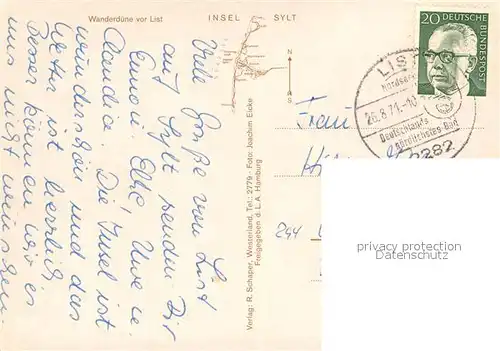 Wanderdüne vor List
INSEL SYLT
N
S
Viele Grüße von List
auf Sylt senden Dir
Simoni Elke, Uwe u.
Claudia. Die Insel ist
wunderschön und das
Wetter ist herrlich,
besser können wir es
uns nicht wünschen.
Verlag: R. Schaper, Westerland, Tel.: 2779 · Foto: Joachim Eicke
Freigegeben d. L. A. Hamburg
20 DEUTSCHE BUNDESPOST
LIST
Nordsee
26.8.71.-10
Deutschlands
nördlichstes Bad
2282
Frau
244
privacy protection
veikkos.com